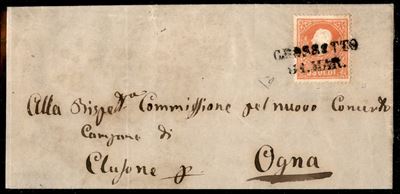 GROSSETTO
24.MAR.
5 SOLDI
Alla Rispett.a Commissione pel nuovo Concerto
Campane di
Clusone p Ogna